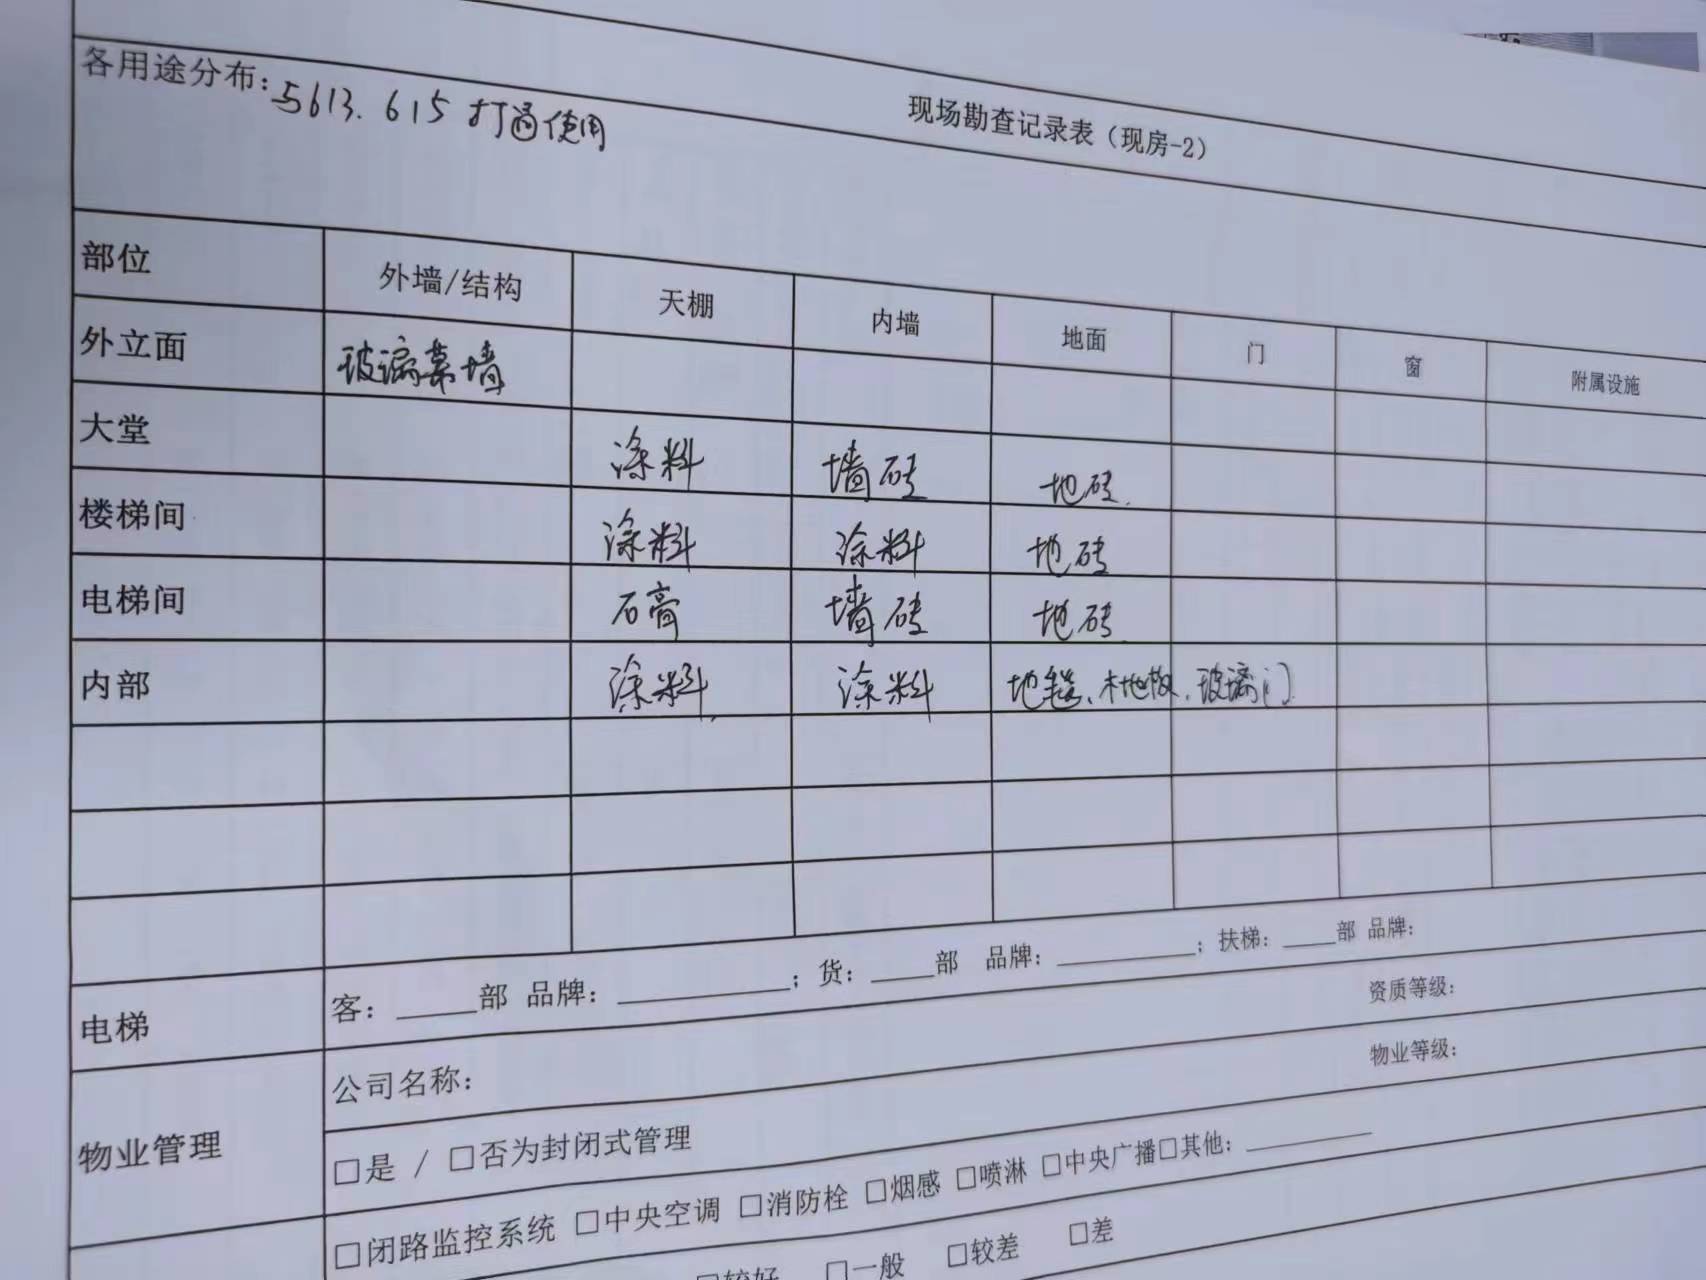 现场勘查记录表（现房-2）
各用途分布：与613.615打通使用
部位 外墙/结构 天棚 内墙 地面 门 窗 附属设施
外立面 玻璃幕墙
大堂 涂料 墙砖 地砖
楼梯间 涂料 涂料 地砖
电梯间 石膏 墙砖 地砖
内部 涂料 涂料 地毯、木地板、玻璃门
电梯 客：____部 品牌：________；货：____部 品牌：________；扶梯：____部 品牌：
物业管理 公司名称： 资质等级：
□是 / □否为封闭式管理 物业等级：
□闭路监控系统 □中央空调 □消防栓 □烟感 □喷淋 □中央广播□其他：________
□较好 □一般 □较差 □差